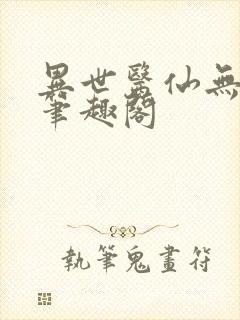 異世醫仙無
筆趣閣
執筆鬼畫符